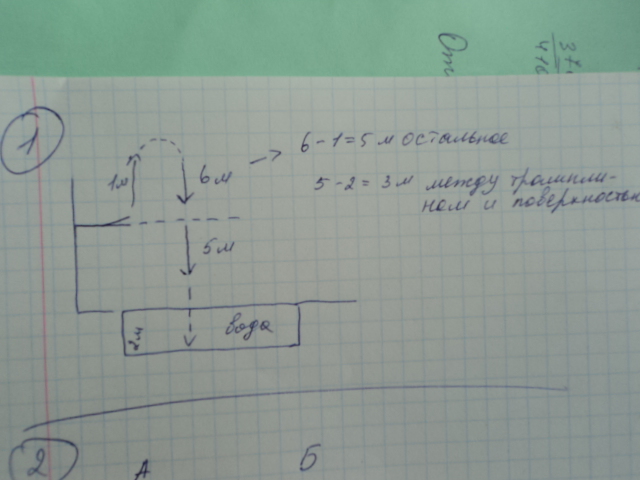 От
37
416
1
6-1=5 м остальное
1м
6 м
5-2= 3 м между трампли-
ном и поверхностью
5 м
2м
вода
2
А
Б